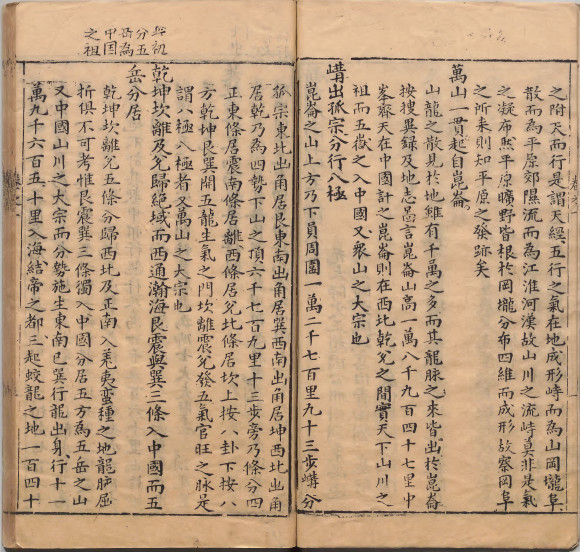 之附天而行是謂天經五行之氣在地成形峙而為山岡壠阜
散而為平原郊隰流而為江淮河漢故山川之流峙莫非是氣
之凝布然平原曠野皆根於岡壠分布四維而成形故察岡阜
之所来則知平原之發跡矣
萬山一貫起自崑崙
山龍之散見於地雖有千萬之多而其龍脉之來皆出於崑崙
按捜異録及地志啚言崑崙山高一萬八千九百四十七里中
峯齋天在中國計之崑崙則在西北乾兊之間實天下山川之
祖而五嶽之入中國又衆山之大宗也
嶹出孤宗分行八極
崑崙之山上方乃下員周圍一萬二千七百里九十三步嶹分
孤宗東北出角居艮東南出角居巽西南出角居坤西北出角
居乾乃為四勢下山之頂六千七百九里十三步旁乃條分四
正東條居震南條居離西條居兊北條居坎上按八卦下按八
方乾坤艮巽開五龍生氣之門坎離震兊發五氣官旺之脉是
謂八極八極者又萬山之大宗也
乾坤坎離及兊歸絕域而西通瀚海艮震與巽三條入中國而五
岳分居
乾坤坎離兊五條分歸西北及正南入羌夷蠻種之地龍脉屈
折俱不可考惟艮震巽三條獨入中國分居五方為五岳之山
又中國山川之大宗而分勢施生東南巳巽行龍出身行十一
萬九千六百五十里入海結帝之都三起蛟龍之地一百四十
分五
岳為
中国
之祖
卷之一